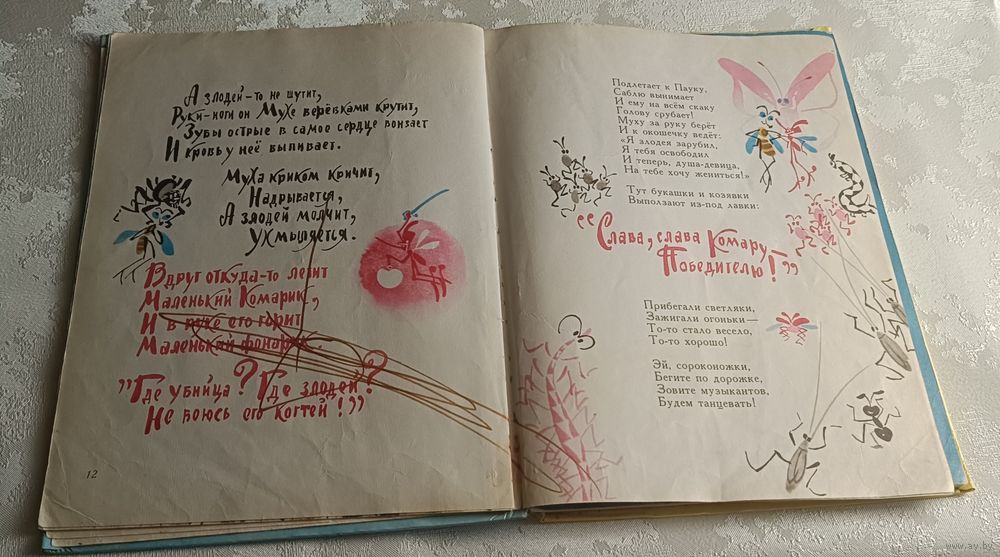 А злодей-то не шутит,
Руки-ноги он Мухе верёвками крутит,
Зубы острые в самое сердце вонзает
И кровь у неё выпивает.
Муха криком кричит,
Надрывается,
А злодей молчит,
Ухмыляется.
Вдруг откуда-то летит
Маленький Комарик,
И в руке его горит
Маленький фонарик.
„Где убийца? Где злодей?
Не боюсь его когтей!”
12
Подлетает к Пауку,
Саблю вынимает
И ему на всём скаку
Голову срубает!
Муху за руку берёт
И к окошечку ведёт:
«Я злодея зарубил,
Я тебя освободил
И теперь, душа-девица,
На тебе хочу жениться!»
Тут букашки и козявки
Выползают из-под лавки:
“Слава, слава Комару-
Победителю!”
Прибегали светляки,
Зажигали огоньки—
То-то стало весело,
То-то хорошо!
Эй, сороконожки,
Бегите по дорожке,
Зовите музыкантов,
Будем танцевать!
www.ay.by